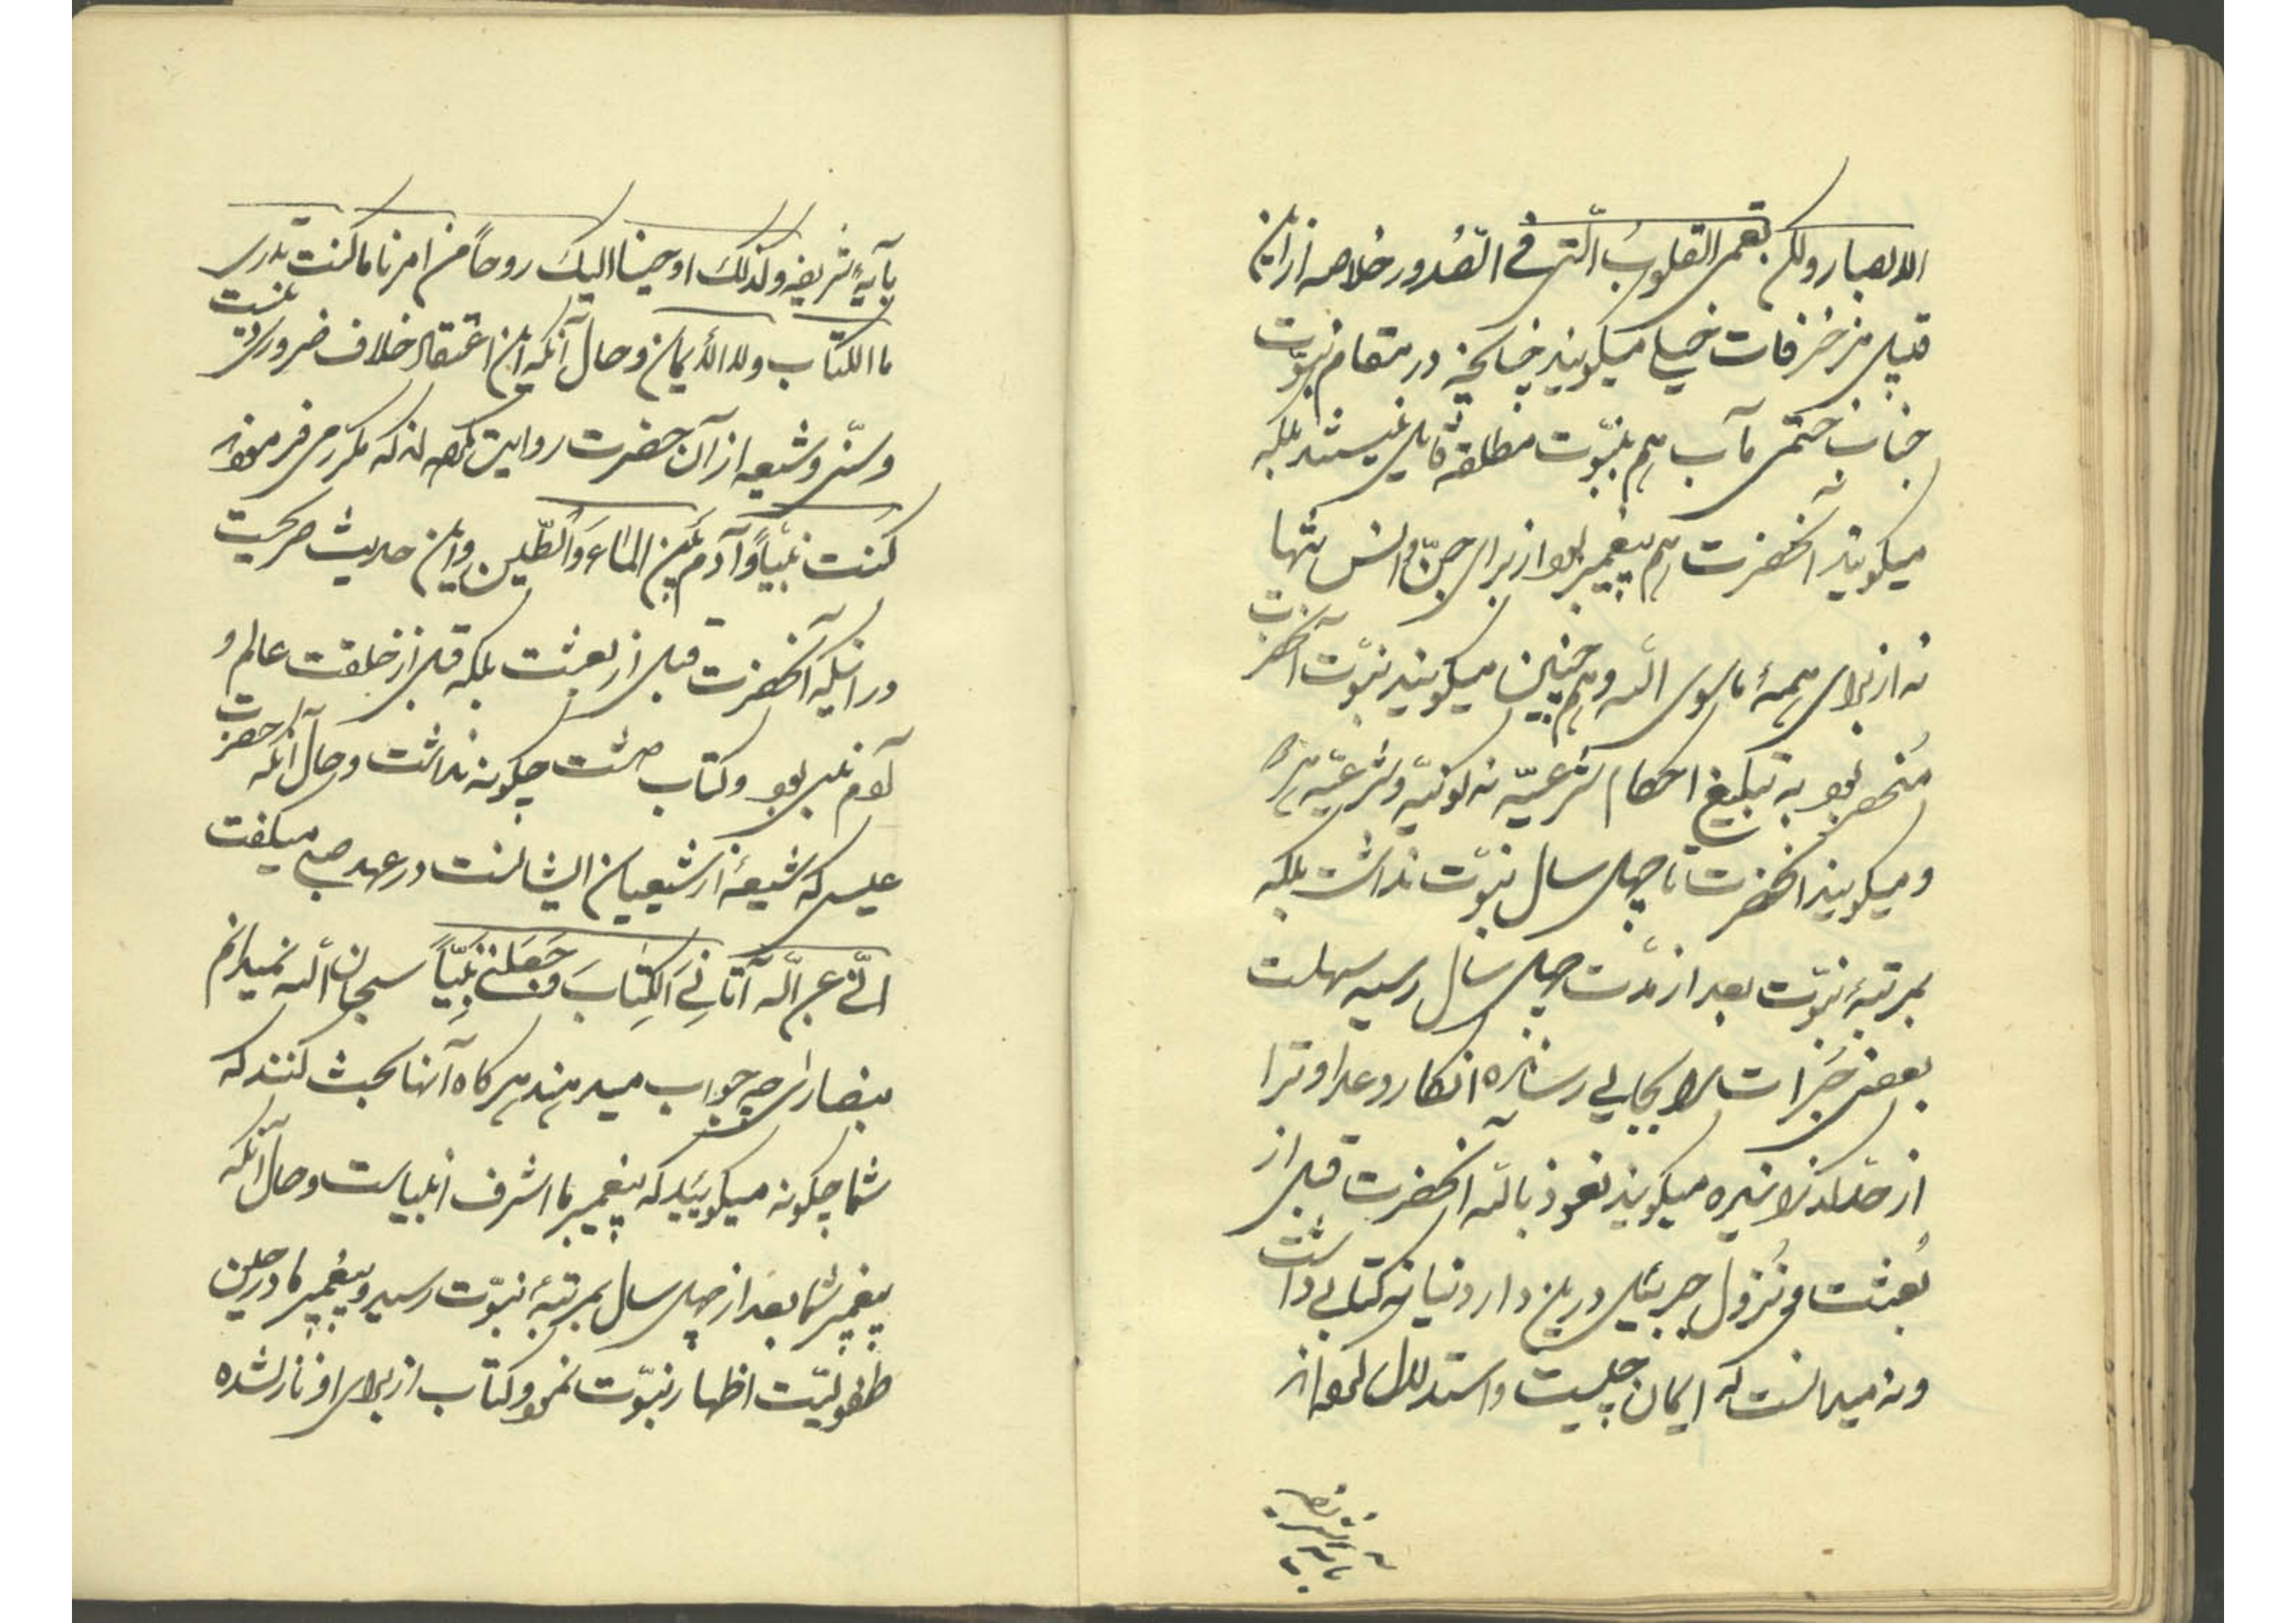 الابصار ولکن تعمی القلوب الّتی فی الصّدور خلاصه ازین
قبیل مزخرفات خیلی میکویند چنانچه در مقام نبوّت
جناب ختمی مآب هم بنبوّت مطلقه قایل نیستند بلکه
میکویند آنحضرت هم پیغمبر بود از برای جنّ و انس تنها
نه از برای همهٔ ماسوی اللّه و هم چنین میکویند نبوّت آنحضرت
منحصر بود به تبلیغ احکام شرعیّه نه کونیّه و شرعیّه هر دو
و میکویند آنحضرت تا چهل سال نبوّت نداشت بلکه
بمرتبهٔ نبوّت بعد از مدّت چهل سال رسید سهلست
بعضی حضرات بجایی رسانیده انکار و عداوترا
از حدّ کذرانیده میکویند نعوذ باللّه آنحضرت قبل از
بُعثت و نُزول جبرئیل درین دار دنیا نه کتابی داشت
و نه میدانست که ایمان چیست و استدلال نموده اند
بآیه شریفه
بآیهٔ شریفه وکذلک اوحینا الیک روحاً من امرنا ما کنت تدری
ما الکتاب ولا الایمان و حال آنکه این اعتقاد خلاف ضروری
و سنّی و شیعه از آن حضرت روایت کرده اند که مکرر می فرموند
کُنت نبیّاً و آدم بَین الماء وَالطّین و این حدیث صریحست
در اینکه آنحضرت قبل از بعثت بلکه قبل از خلقت عالم و
آدم نبی بود و کتاب داشت چکونه نداشت و حال آنکه حضرت
عیسی که شیعهٔ از شیعیان ایشانست در عهد صبی میکفت
انّی عبد اللّه آتانِیَ الکِتابَ وَجَعَلَنی نَبِیّاً سبحان اللّه نمیدانم
بنصارای چه جواب میدهند هرکاه آنها بحث کنند که
شما چکونه میکویید که پیغمبر ما اشرف انبیاست و حال آنکه
پیغمبر شما بعد از چهل سال بمرتبهٔ نبوّت رسید و پیغمبر ما در حین
طفولیّت اظهار نبوّت نمود و کتاب از برای او نازل شده